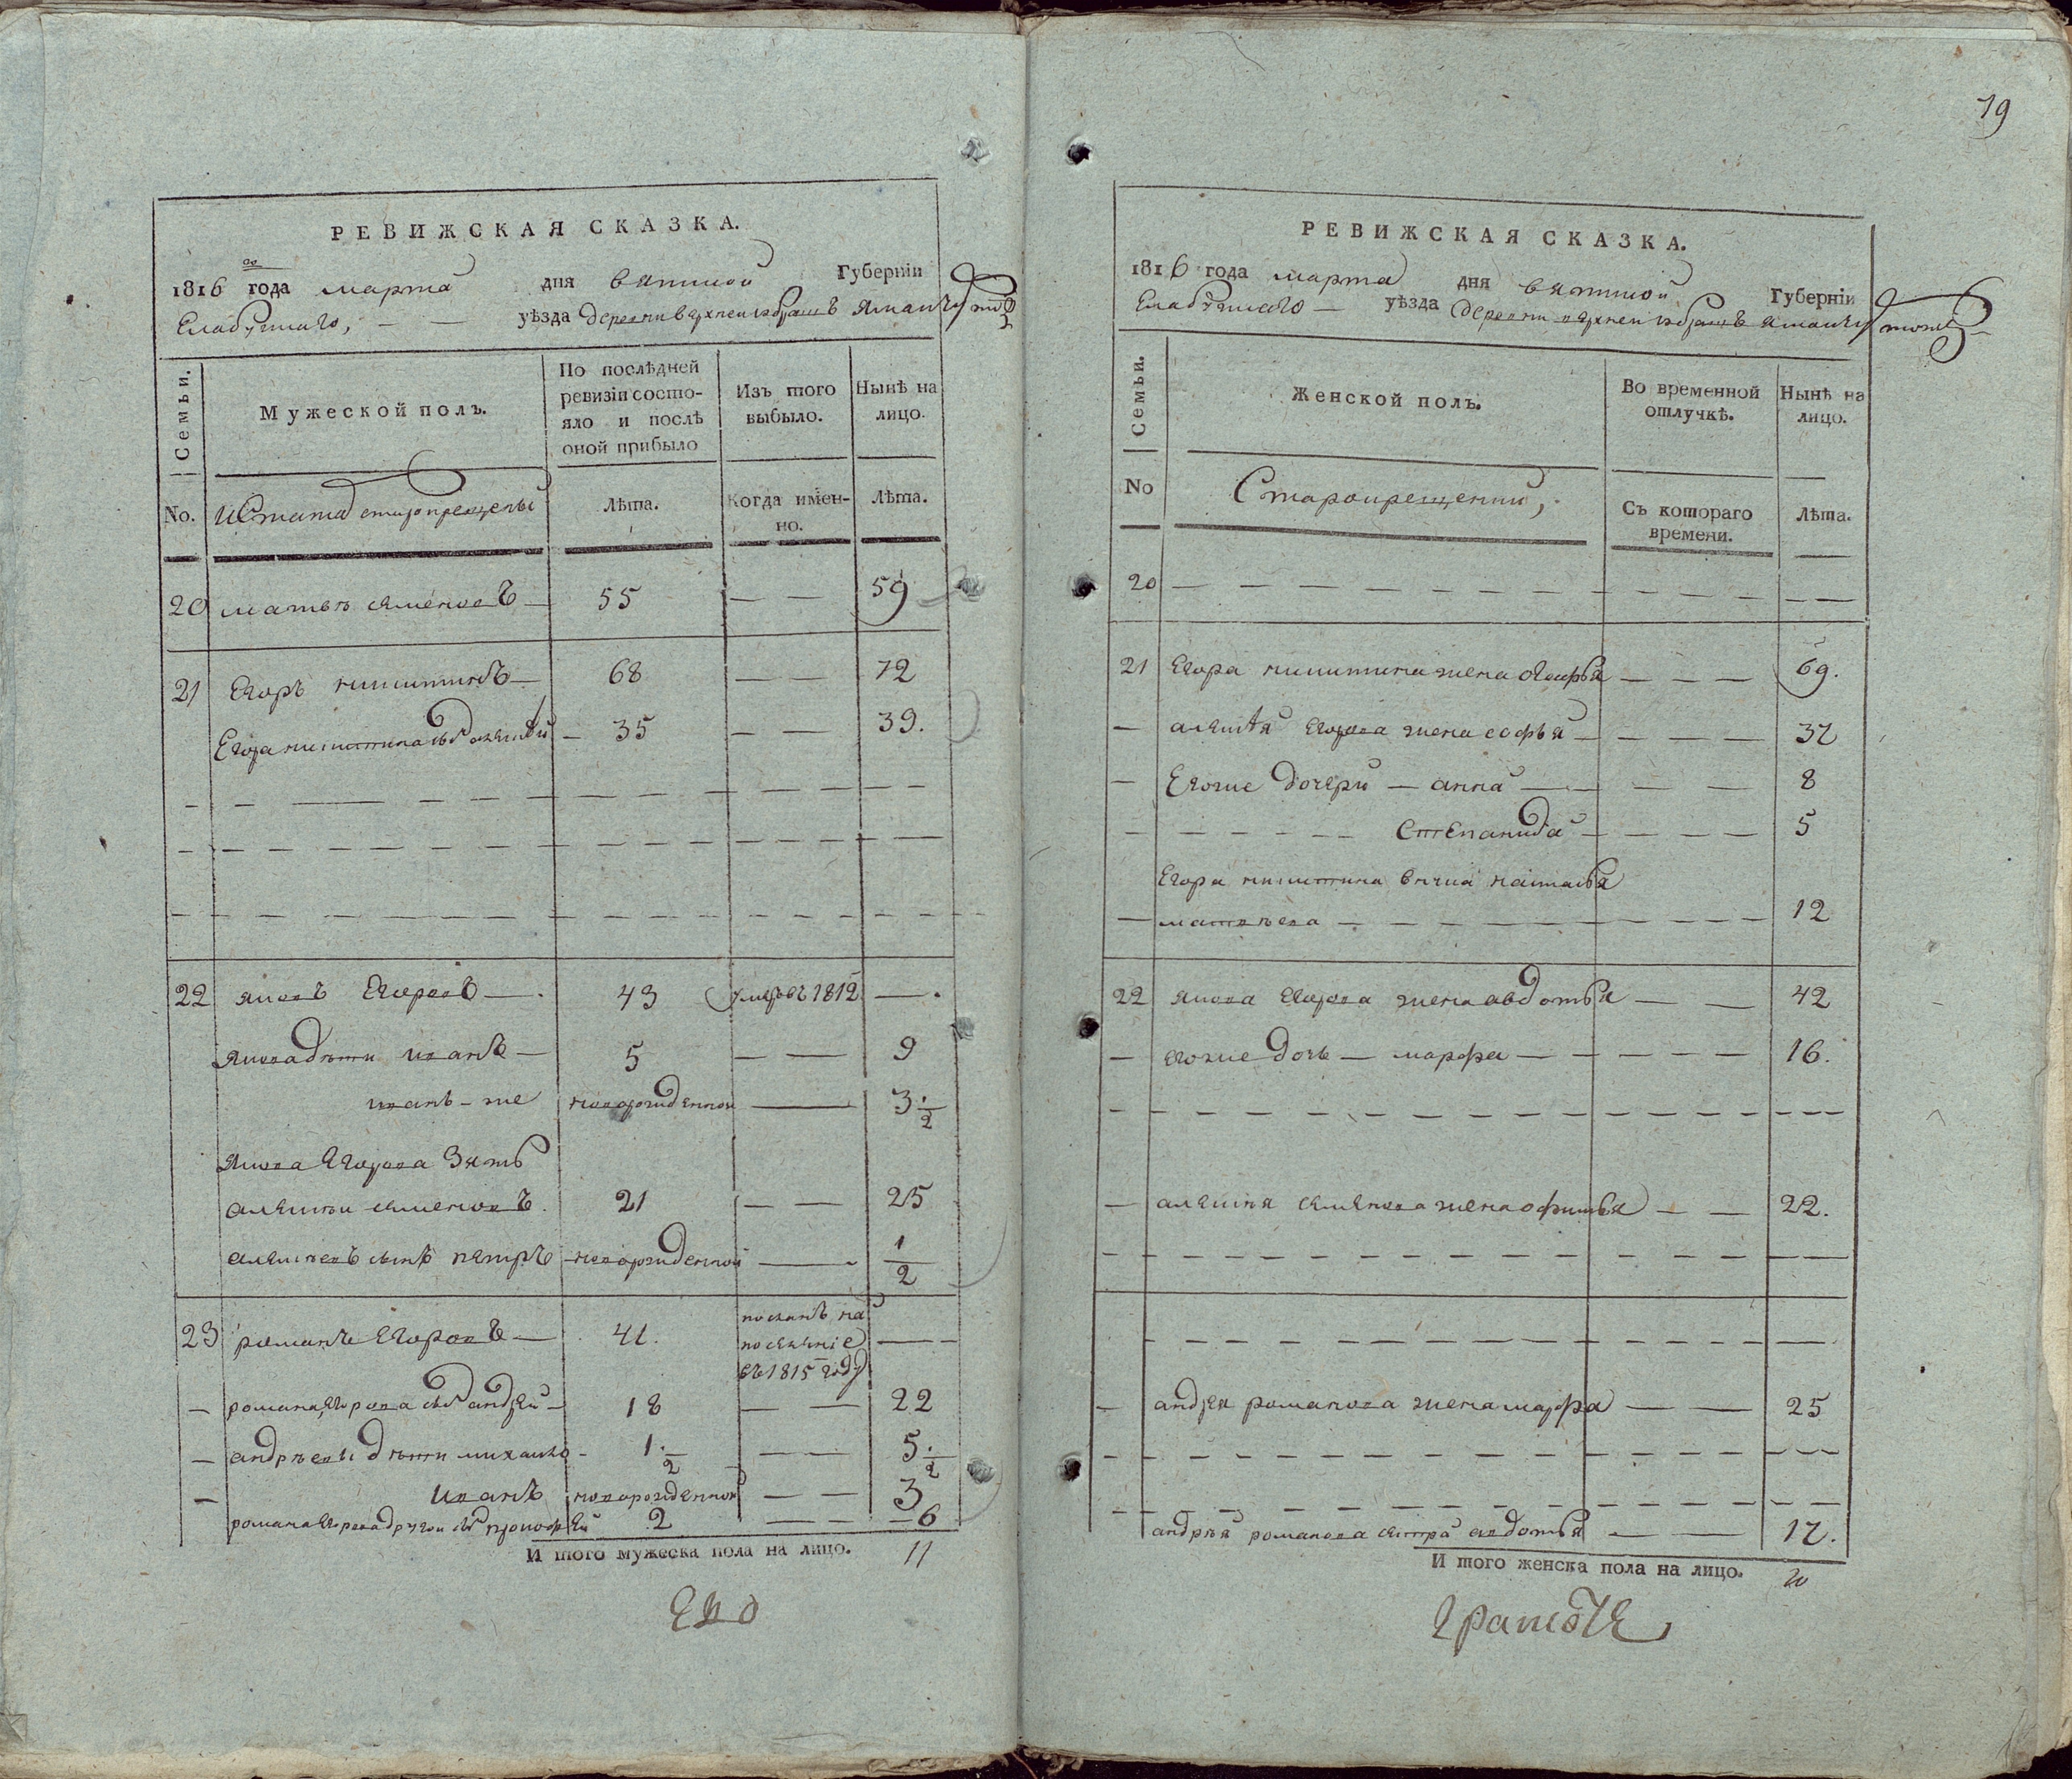 РЕВИЖСКАЯ СКАЗКА.
1816 года марта дня вятской Губерніи
Елабужскаго, — — уѣзда деревни верхнеи
По послѣдней ревизіи состо-
яло и послѣ
оной прибыло
Семьи.
Мужеской полъ.
Изъ того
выбыло.
Нынѣ на
лицо.
No.
старокрещены
Лѣта.
Когда имен-
но.
Лѣта.
20 матвѣ семеновъ — 55 — — 59
21 Егоръ никитинъ — 68 — — 72
Егора никитина сынъ алексѣй — 35 — — 39.
22 яковъ Егоровъ — 43 умеръ въ 1812 —
якова дѣти иванъ — 5 — — 9
иванъ - же новорожденнои — 3 1/2
якова Егорова зять
алексѣи семеновъ 21 — — 25
алексѣевъ сынъ петръ новорожденной — 1/2
23 романъ Егоровъ — 41. посланъ на
поселѣніе
въ 1815 году — —
— романа Егорова сынъ андрей — 18 — — 22
— андрѣевы дѣти михаило - 1 1/2 — — 5 1/2
— иванъ новорожденной — — 3
романа Егорова другои сынъ прокофей 2 — — 6
И того мужеска пола на лицо. 11
Ево
19
РЕВИЖСКАЯ СКАЗКА.
1816 года марта дня вятской Губерніи
Елабужскаго — уѣзда деревни верхнеи
Семьи.
Женской полъ.
Во временной
отлучкѣ.
Нынѣ на
лицо.
No
Старокрещении,
Съ котораго
времени.
Лѣта.
20 — — —
21 Егора никитина жена — — — 69.
— алексѣя Егорова жена софья — — — 37
— Егоже дочери — анна — — — 8
— — — Степанида — — — 5
Егора никитина внука наталья
— матвѣева — — — 12
22 якова Егорова жена авдотья — — 42
— егоже дочь — марфа — — — 16.
— алексѣя семенова жена офимья — — 22.
— андрея романова жена марфа — — 25
андрѣя романова сестра авдотья — — 17.
И того женска пола на лицо. 10
грамоте